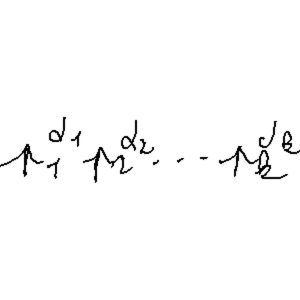 p₁^α₁ p₂^α₂ . . . p_k^α_k